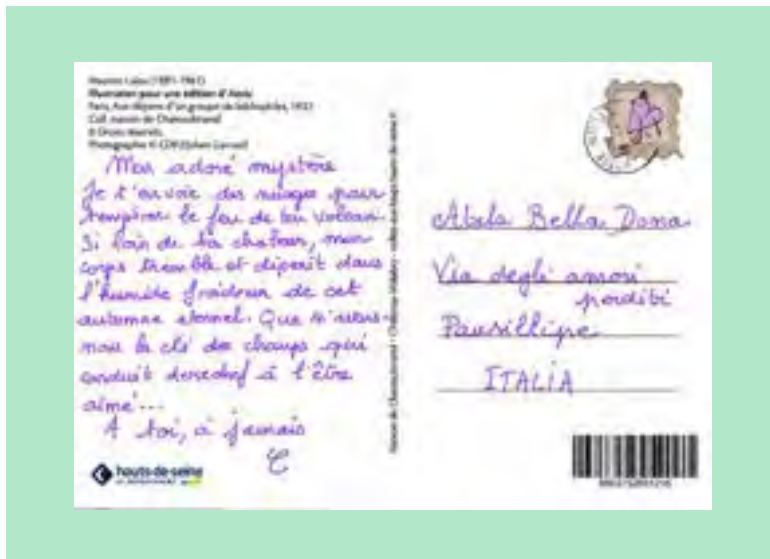 Illustration pour une édition d'Atala
Paris, Aux dépens d'un groupe de bibliophiles, 1932
Coll. maison de Chateaubriand
© Droits réservés
Photographie © CD92/Julien Garraud
Mon adoré mystère
Je t'envoie des nuages pour
tempérer le feu de ton volcan.
Si loin de ta chaleur, mon
corps tremble et dépérit dans
l'humide froideur de cet
automne éternel. Que n'avons-
nous la clé des champs qui
conduit derechef à l'être
aimé...
A toi, à jamais
C
hauts-de-seine
Atala Bella Dona
Via degli amori
perditi
Pausillipe
ITALIA